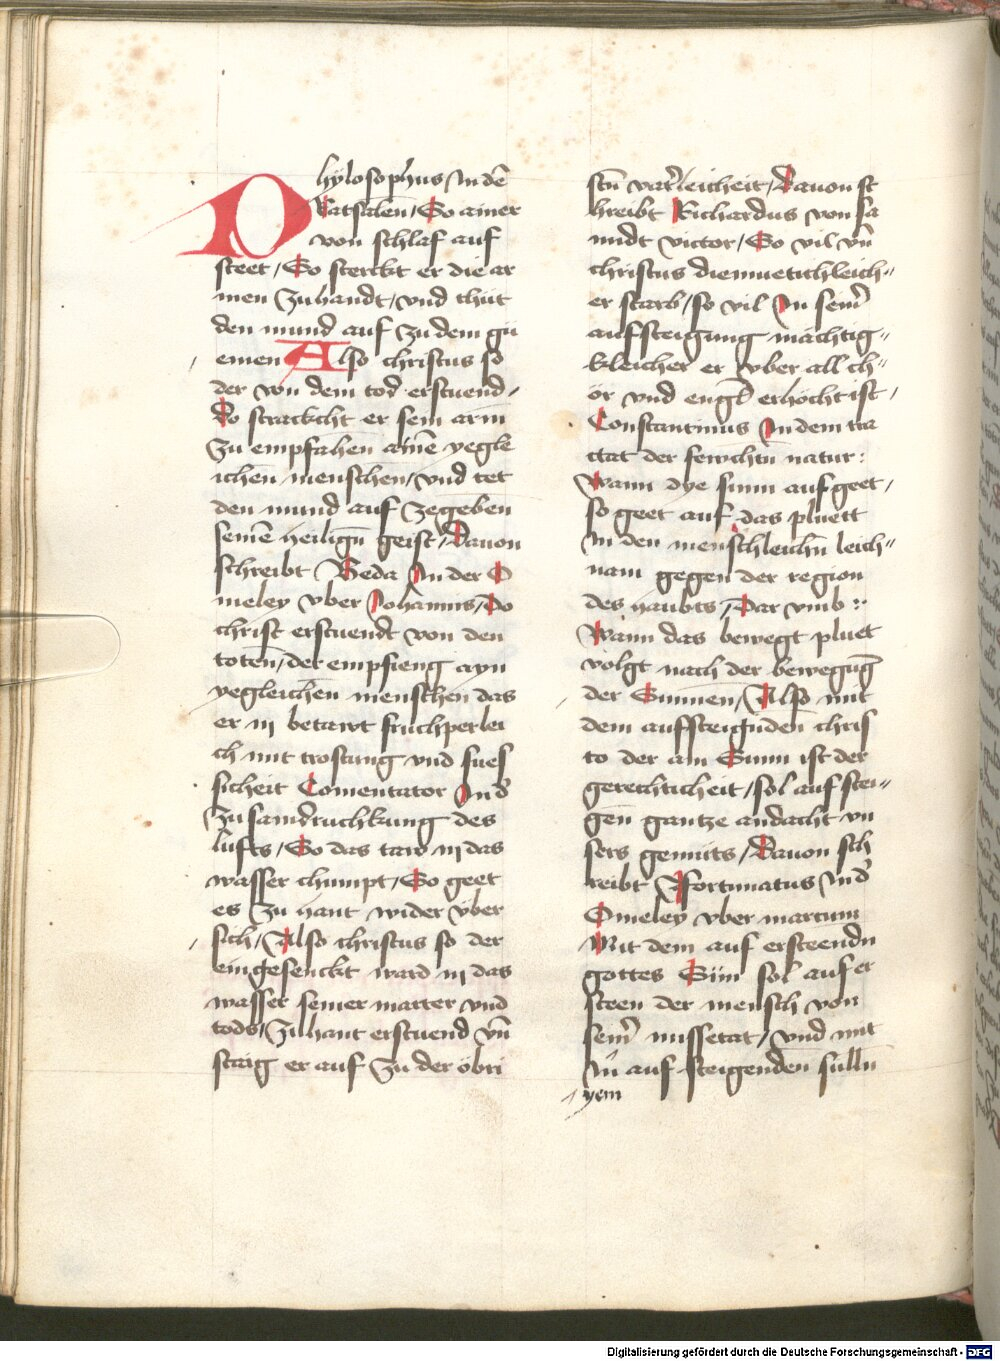 Phÿlosophus / In dē
Ratsalen / So ainer
von schlaf auf
steet / So sterckt er die ar
men zuhandt / vnd thůt
den mund auf zu dem gü
emen Also christus so
der von dem tod erstuend /
Do strackcht er sein arm
zu empfahen ainē yegle
ichen menschen / vnd tet
den mund auf zegeben
seinē heiligū geist / Dauon
schreibt Beda In der O
meley vber Johannis / Do
christ erstuendt von den
toten / der empfieng ayn
yegleichen menschen das
er in betawt fruchperlei
ch mit trostung vnd sues
sicheit Comentator Ind̄
zusamdruchkung des
lufts / So das taw in das
wasser chumpt / So geet
es zu hant wider vber
sich / Also christus so der
eingesenckt ward in das
wasser seiner marter vnd
tods / zuhant erstuend vn̄
staig er auf zu der öbri
stn̄ vaterleicheit / Dauon st
hreibt Richardus von sa
nndt victor / So vil vn̄
christus diemuetichleich„
er starb / so vil In seinr̄
aufsteigung mächtig„
kleicher er vber all ch„
ör vnd engl̄ erhöcht ist /
Constantinus In dem tra
ctat der fewchtn̄ natur :
Wann dye sunn auf geet /
so geet auf das pluett
In den menschleichn̄ leich„
nam gegen der region
des haubts / Dar vmb :
Wann das bewegt pluet
volgt nach der bewegūg
der Sunnen / Also mit
dem aufsteignden chris
to der ain Sunn ist der
gerechticheit / sol auf stei„
gen gantze andacht vn
sers gemüts / Dauon sch
reibt Fortunatus Ind̄
Omeley vber martum
Mit dem auf ersteendn
gottes Sün sol auf er
steen der mensch von
seinr̄ missetat / vnd mit
Im auf steigenden sulln
yem
Digitalisierung gefördert durch die Deutsche Forschungsgemeinschaft - DFG